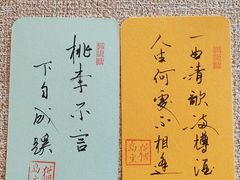 桃李不言
下自成蹊
一曲清歌满樽酒
人生何處不相逢